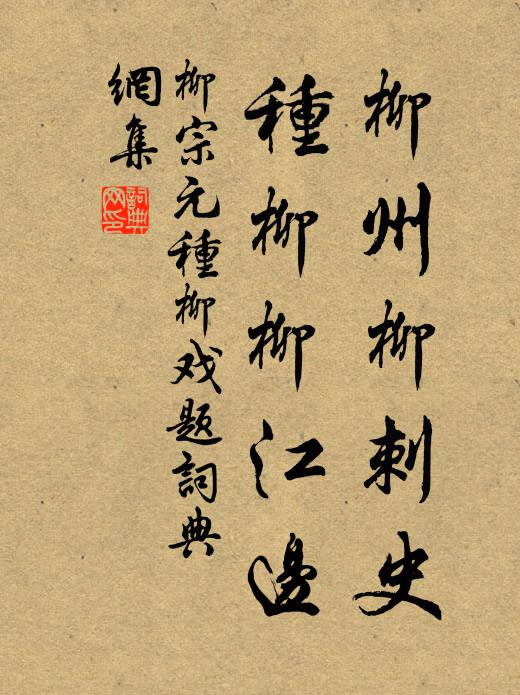 柳州柳刺史
種柳柳江邊
柳宗元種柳戏题詞典
網集
詞典
网印